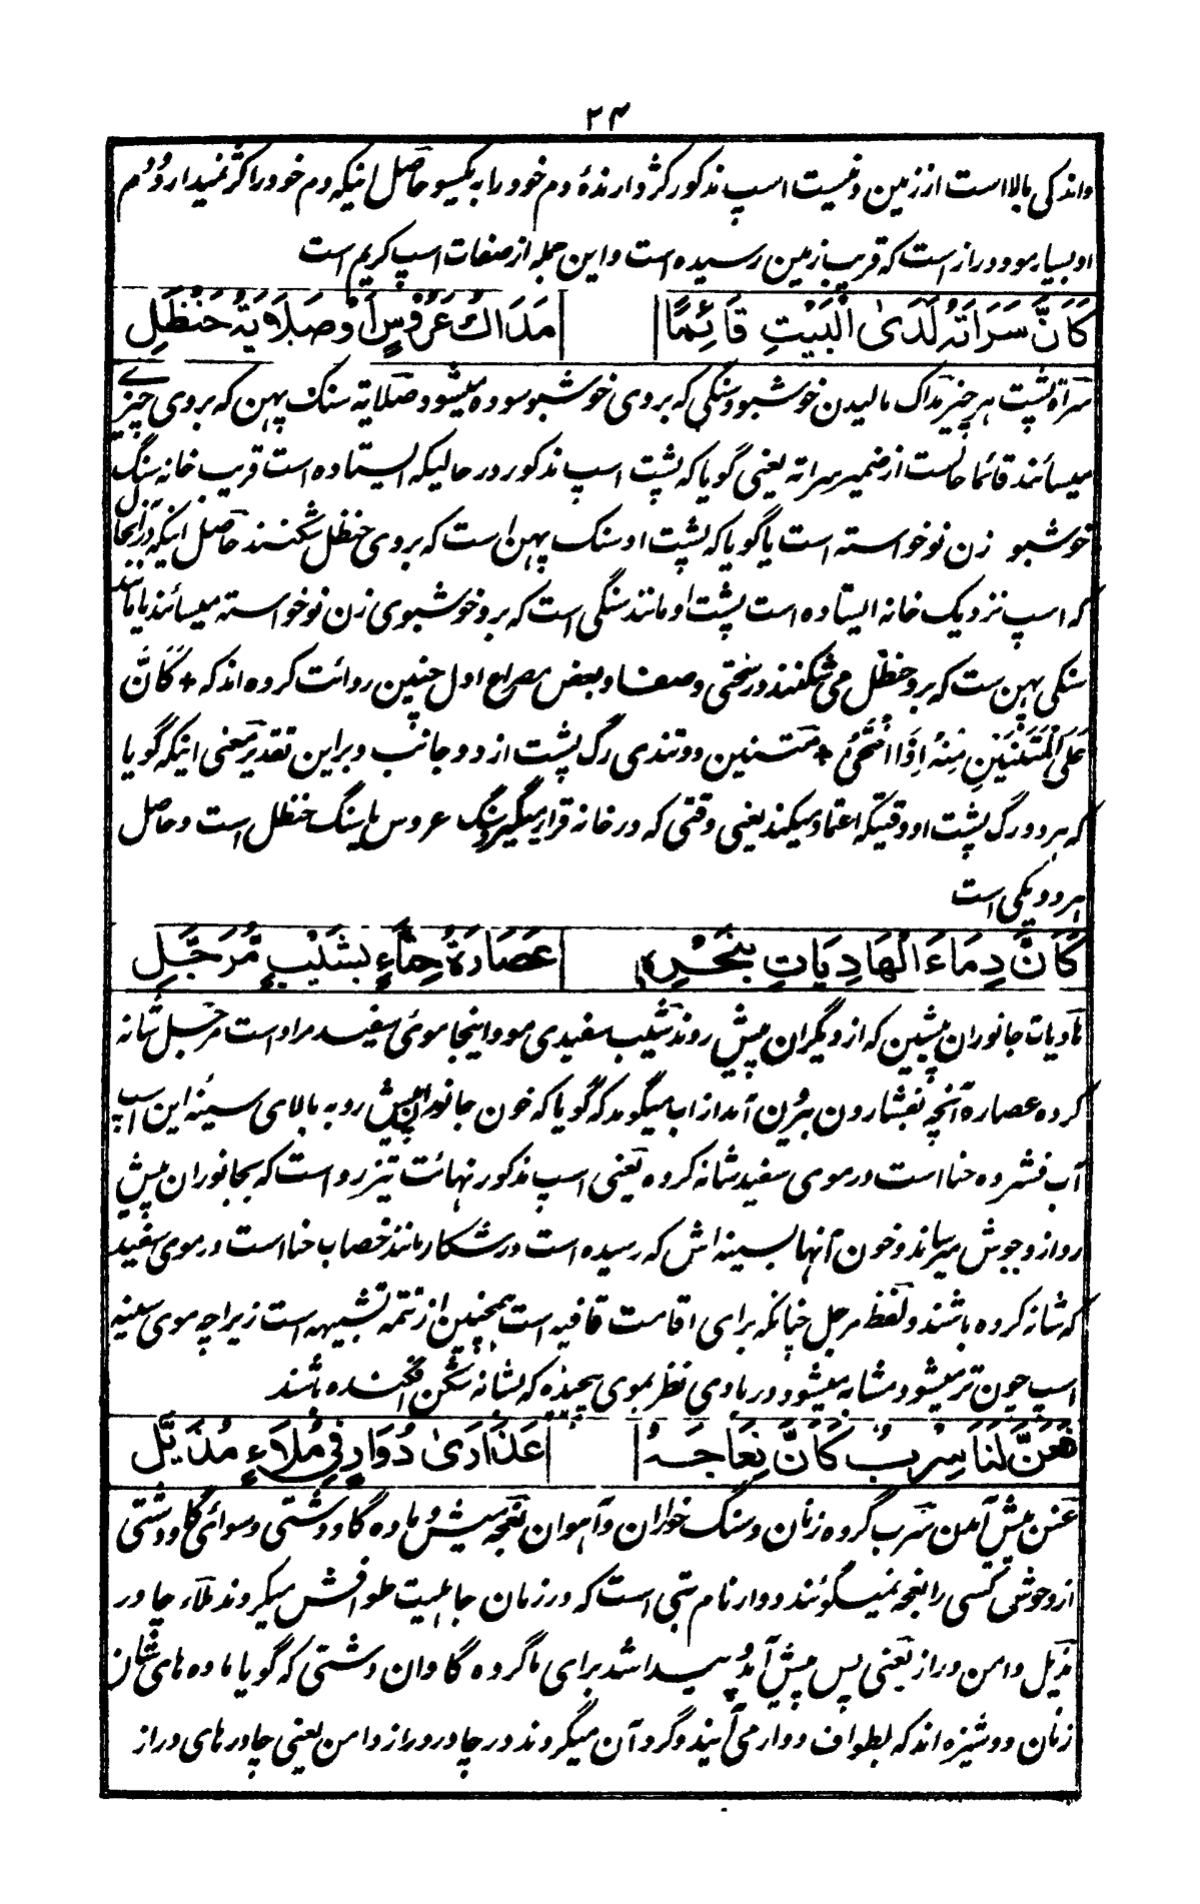 ۲۴
واندکی بالا است از زمین و نیست اسپ مذکور کژ دارندهٔ دم خود را به یکسو حاصل اینکه دم خود را کژ نمیدارد و دم
او بسیار مو و دراز است که قریب زمین رسیده است و این جمله از صفات اسپ کریم است
كَاَنَّ سَرَاتَهٗ لَدَى الْبَيْتِ قَائِمًا | مَدَاكُ عَرُوْسٍ اَوْ صَلَايَةُ حَنْظَلِ
سراة پشت هر چیز مداک مالیدن خوشبو و سنگی که بروی خوشبو سوده میشود صلایة سنگ پهن که بروی چیزے
میسائند قائما حالست از ضمیر سراته یعنی گویا که پشت اسپ مذکور در حالیکه ایستاده است قریب خانه سنگ
خوشبو زن نوخواسته است یا گویا که پشت او سنگ پهن است که بروی حنظل شکنند حاصل اینکه در آنحال
که اسپ نزدیک خانه ایستاده است پشت او مانند سنگی است که برو خوشبوی زن نوخواسته میسائند یا مانند
سنگی پهن ست که برو حنظل می شکنند در سختی و صفا و بعض مصراع اول چنین روائت کرده اند که + كَاَنَّ
عَلَى الْمَتْنَيْنِ مِنْهُ اِذَا انْتَحٰى + متنین دو تندی رگ پشت از دو جانب و براین تقدیر معنی اینکه گویا
که هر دو رگ پشت او وقتیکه اعتماد میکند یعنی وقتی که در خانه قرار میگیرد سنگ عروس یا سنگ حنظل است و حاصل
هر دو یکی است
كَاَنَّ دِمَاءَ الْهَادِيَاتِ بِنَحْرِهٖ | عُصَارَةُ حِنَّاءٍ بِشَيْبٍ مُّرَجَّلِ
هادیات جانوران پیشین که از دیگران پیش روند شیب سفیدی مو و اینجا موی سفید مراد است مرجل شانه
کرده عصارة آنچه بفشاردن بیرون آمد از اب میگوید که گویا که خون جانوران پیش رو به بالای سینه این اسپ
آب فشرده حنا است در موی سفید شانه کرده یعنی اسپ مذکور نهائت تیز رو است که بجانوران پیش
رو از وحوش میرساند و خون آنها بسینه اش که رسیده است در شکار مانند خضاب حنا است در موی سفید
که شانه کرده باشند و لفظ مرجل چنانکه برای اقامت قافیه است همچنین از تتمه تشبیهه است زیرا چه موی سینه
اسپ چون تر میشود مشابه میشود در بادی نظر بموی پیچیده که بشانه شکن افگنده باشند
فَعَنَّ لَنَا سِرْبٌ كَاَنَّ نِعَاجَهٗ | عَذَارَى دُوَارٍ فِي مُلَاءٍ مُذَيَّلِ
عنن پیش آمدن سرب گروه زنان و سنگ خواران و آهوان نعجه میش و ماده گاو دشتی و سوائی گاو دشتی
از وحوشی کسی را نعجه نمیگوئند دوار نام بتی است که در زمان جاهلیت طوافش میکردند ملاء چادر
مذیل دامن دراز یعنی پس پیش آمد و پیدا شد برای ما گروه گاوان دشتی که گویا ماده های شان
زنان دوشیزه اند که بطواف دوار می آیند و گرد آن میگردند در چادر دراز دامن یعنی چادرهای دراز